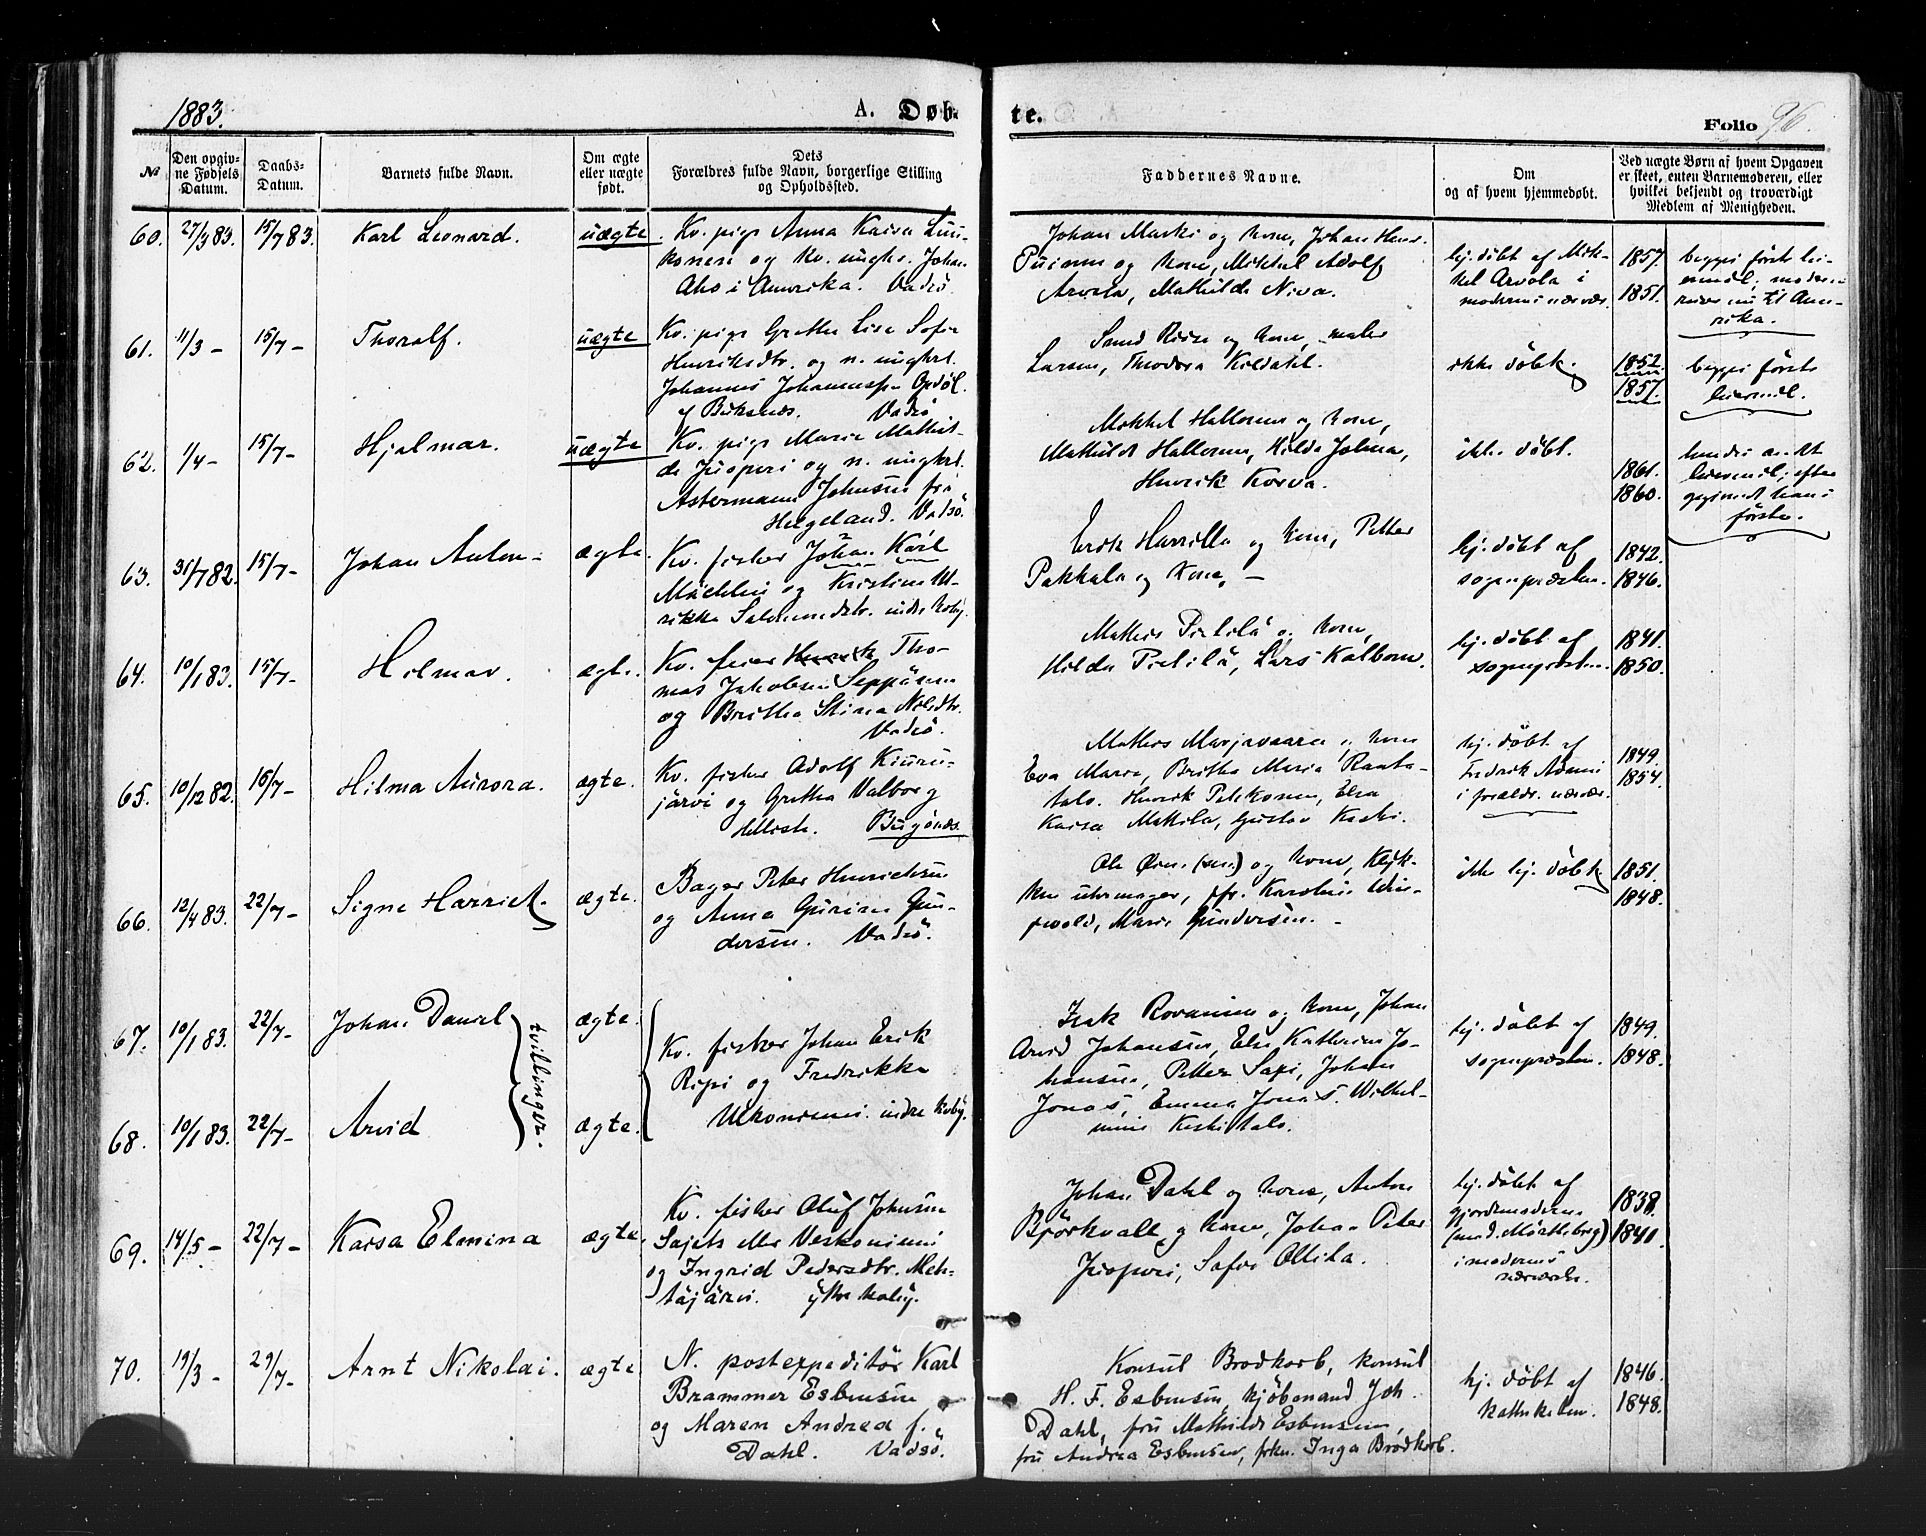 1883.
A. Døb-
te.
Folio 96.
№
Den opgiv-
ne Fødsels
Datum.
Daabs-
Datum.
Barnets fulde Navn.
Om ægte
eller uægte
født.
Dets
Forældres fulde Navn, borgerlige Stilling
og Opholdssted.
Faddernes Navne.
Om
og af hvem hjemmedøbt.
Ved uægte Børn af hvem Opgaven
er skeet, enten Barnemoderen, eller
hvilket bekjendt og troværdigt
Medlem af Menigheden.
60. 27/3 83. 15/7 83. Karl Leonard. uægte.
Kv. pige Anna Kaisa Luu-
konen og kv. ungkr. Johan
Aho i Amerika. Vadsö.
Johan Maski og kone, Johan Henr.
og kone, Mikkel Adolf
Arvola, Mathilde Niva.
hj. döbt af Mik-
kel Arvola i
moderens nærvær.
1857.
1851.
begges förste lei-
ermål; moderen
reiser nu til Ame-
rika.
61. 11/3 - 15/7 - Thoralf. uægte
Kv. pige Gretha Lisa Sofie
Henriksdtr. og n. ungkrl.
Johannes Johannessen Opdöl
Vadsö
og kone, maler
Larsen, Theodora Kildahl.
ikke döbt.
1852.
1857.
begges förste
leiermål.
62. 1/4 - 15/7 - Hjalmar. uægte
Kv. pige Maria Mathil-
de Juoperi og n. ungkrl.
Astermann Johnsen fra
Helgeland. Vadsö.
Mikkel Halonen og kone,
Mathilde Halonen, Hilda Johna,
Henrik Korva.
ikke döbt.
1861.
1860.
hendes andet
leiermål; efter
opgivende hans
förste.
63. 31/7 82. 15/7 - Johan Anton - ægte.
Kv. fisker Johan Karl
og Kristina Ul-
rikka Salomonsdtr. indre kvby.
Erik Harrilla og kone, Petter
Pakkala og kone, -
hj. döbt af
sognepræsten.
1842.
1846.
64. 10/1 83. 15/7 - Hilmar. ægte.
Kv. feier Henrik Tho-
mas Jakobsen Seppänen
og Britha Stina Nilsdtr.
Vadsö.
Mathis Pietilä og kone,
Hilda Pietilä, Lars Kalbom.
hj. döbt af
sognepræsten.
1841.
1850.
65. 10/12 82. 16/7 - Hilma Aurora. ægte.
Kv. fisker Adolf Kiuru-
järvi og Gretha Valborg
Bugönæs.
Mathis Marjavaara og kone
Eva Maria, Britha Maria Raata-
talo. Henrik Pekkonen, Elsa
Kaisa Mattila, Gustav Keski.
hj. döbt af
Fredrik
i forældr. nærvær.
1849.
1854.
66. 12/4 83. 22/7 - Signe Harriet. ægte.
Bager Peter Henrichsen
og Anna Gurine Gun-
dersen. Vadsö.
Ole Ørn. (sen.) og kone,
uhrmager, fr. Karoline
Marie Gundersen. -
ikke hj. döbt.
1851.
1848.
67. 10/1 83. 22/7 - Johan Daniel ægte.
tvillinger.
68. 10/1 83. 22/7 - Arvid ægte.
Kv. fisker Johan Erik
Ripi og Fredrikke
Ukonniemi. indre kvby.
Isak Rovainen og kone, Johan
Arvid Johansen, Else Katharina Jo-
hansen, Petter Sapi, Johan
Jonas, Emma Jonas. Wilhel-
mine Keskitalo.
hj. döbt af
sognepræsten.
1849.
1848.
69. 14/5 - 22/7 - Kaisa Elmina ægte.
Kv. fisker Oluf Johnsen
Sajets eller Veskoniemi
og Ingrid Pedersdtr. Meh-
täjärvi. ytre kvby.
Johan Dahl og kone, Anton
Björkvall og kone, Johan Peter
Juoperi, Sofie Ollila.
hj. döbt af
gjordemoderen
i moderens
nærværelse.
1838.
1840.
70. 19/3 - 29/7 - Arnt Nikolai. ægte.
N. postexpeditör Karl
Brammer Esbensen
og Maren Andrea f.
Dahl. Vadsö.
Konsul Brodkorb, konsul
H. F. Esbensen, kjöbmand Joh.
Dahl, fru Mathilde Esbensen,
fru Andrea Esbensen, frkn. Inga Brodkorb.
hj. döbt af
katheketen.
1846.
1848.